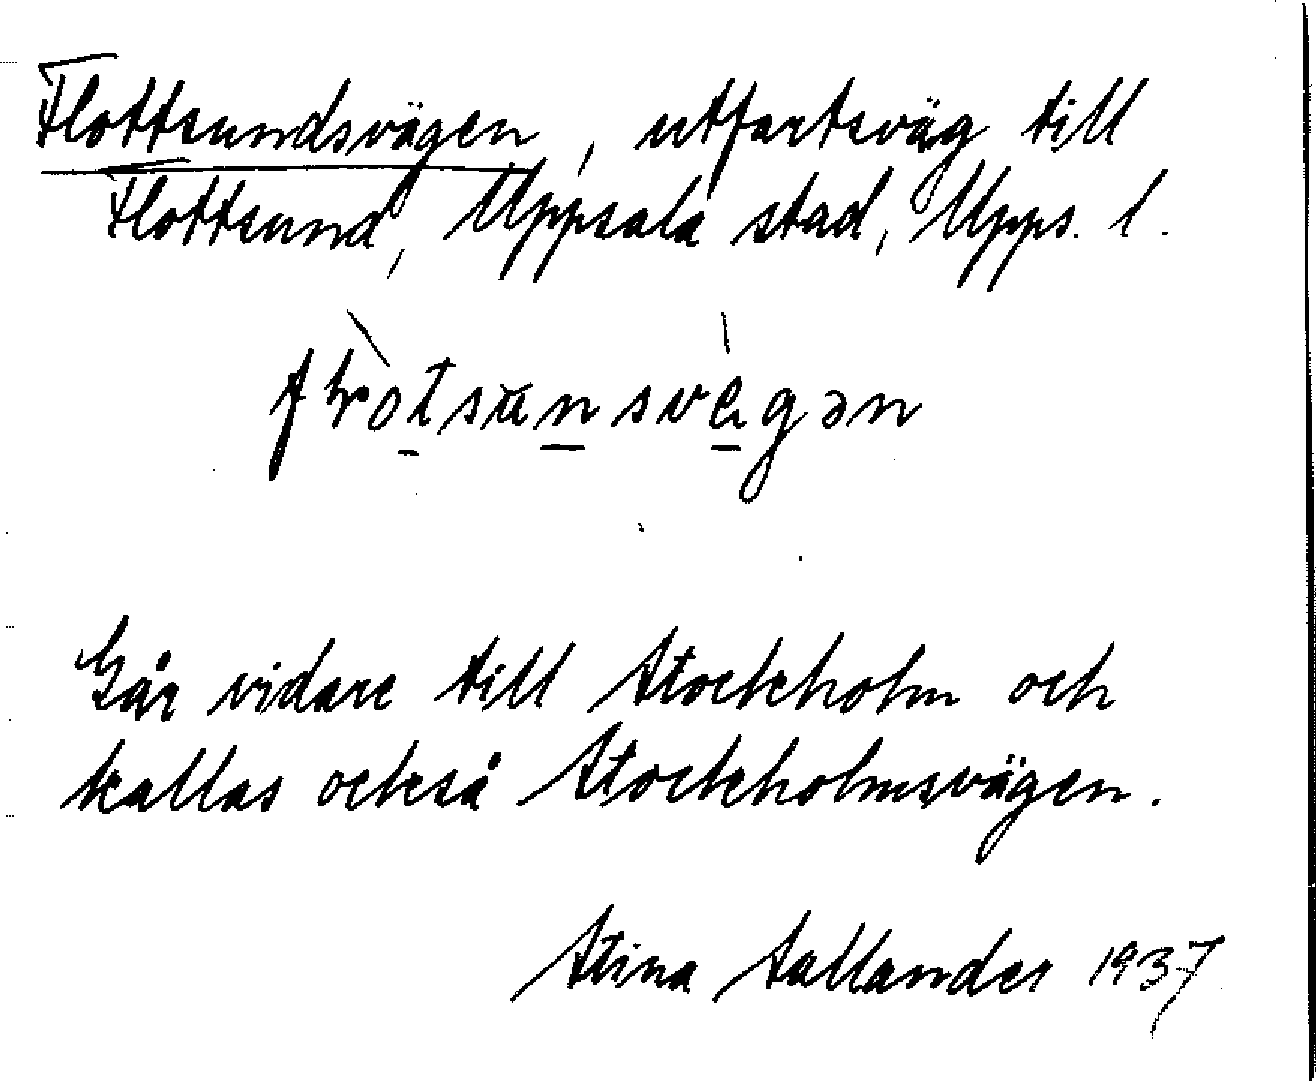 Flottsundsvägen, utfartsväg till
Flottsund, Uppsala stad, Upps. l.
Går vidare till Stockholm och
kallas också Stockholmsvägen.
Stina Sallander 1937